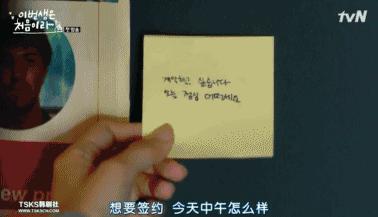 이번생은
처음이라
tvN
계약하고 싶습니다
오늘 점심 어떠세요
ew pr
TSKS韩剧社
WWW.TSKSCN.COM
想要签约 今天中午怎么样